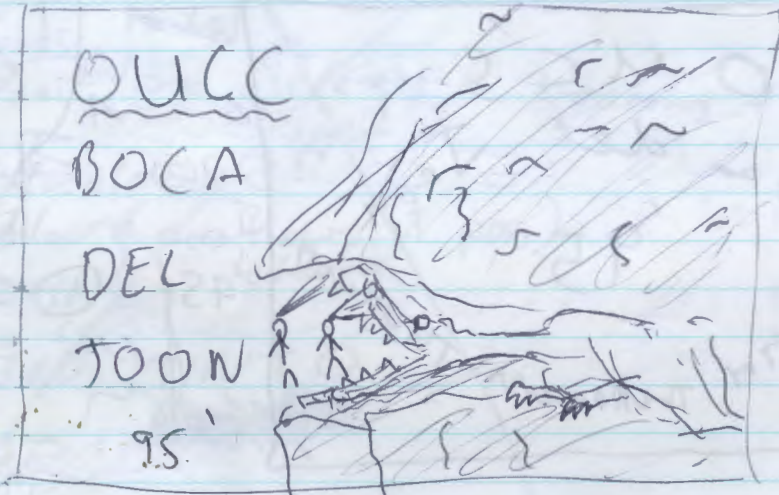 OUCC
BOCA
DEL
JOON
95'